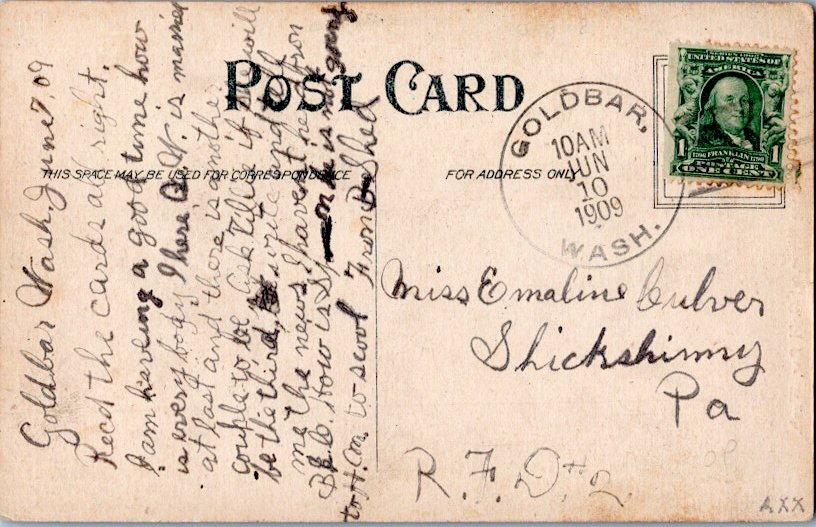 Goldbar Wash, June 7 09
Recd the cards all right.
I am haveing a good time how
is every body I here A. W. is married
at last and there is another
couple to be ask Tillie if she will
be the third, write and tell
me the news I havent heard from
How is not going
to scool From
POST CARD
THIS SPACE MAY BE USED FOR CORRESPONDENCE
FOR ADDRESS ONLY
GOLDBAR,
10AM
JUN
10
1909
WASH.
SERIES 1902
UNITED STATES OF
AMERICA
1706 FRANKLIN 1790
POSTAGE
1 ONE CENT 1
Miss Emaline Culver
Shickshinny
Pa
R. F. D # 2
AXX